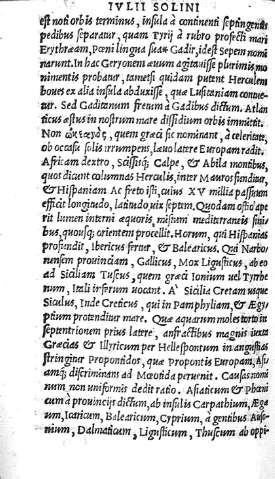 IVLII SOLINI
est noti orbis terminus, insula à continenti septingenteis
pedibus separatur, quam Tyrij à rubro profecti mari
Erythræam, Pœni lingua sua Gadir, id est Sepem nomi
narunt. In hac Geryonem æuum agitauisse plurimis mo
numentis probatur, tametsi quidam putent Herculem
boues ex alia insula abduxisse, quæ Lusitaniam contue
tur. Sed Gaditanum fretum à Gadibus dictum. Atlan
ticus æstus in nostrum mare dissidium orbis immittit.
Non quem græci sic nominant, à celeritate,
ob occasu solis irrumpens, læuo latere Europam radit.
Africam dextro, Scissisq; Calpe, & Abila montibus,
quos dicunt columnas Herculis, inter Mauros funditur,
& Hispaniam Ac freto isti, cuius XV millia passuum
efficit longitudo, latitudo uix septem. Quodam ostio ape
rit lumen interni æquoris, mistum mediterraneis sini
bus, quousq; orientem procellit. Horum, qui Hispanias
profundit, Ibericus fertur, & Balearicus. Qui Narbo
nensem prouinciam, Gallicus, Mox Ligusticus, ab eo
ad Siciliam Tuscus, quem græci Ionium uel Tyrrhe
num, Itali inferum uocant. A Sicilia Cretam usque
Siculus, Inde Creticus, qui in Pamphyliam, & Ægy
ptium protenditur mare. Quæ aquarum moles torto in
septentrionem prius latere, anfractibus magnis iuxta
Græcias & Illyricum per Hellespontum in angustias
stringitur Propontidos, quæ Propontis Europam, Asi
amq; discriminans ad Mœotida peruenit. Causas nomi
num non uniformis dedit ratio. Asiaticum & Phœni
cum à prouincijs dictum, ab insulis Carpathium, Ægæ
um, Icaricum, Balearicum, Cyprium, à gentibus Auso
nium, Dalmaticum, Ligusticum, Thuscum ab oppi-